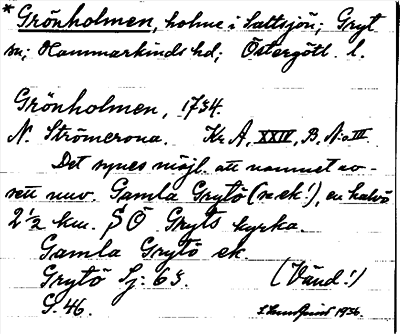 * Grönholmen, holme i Saltsjön; Gryt
sn; Hammarkinds hd; Östergötl. l.
Grönholmen, 1734.
N. Strömerona. Kr A, XXIV, B, No III.
Det synes möjl. att namnet av-
sett nuv. Gamla Grytö (se ek!), en halvö
2 ½ km. S Ö Gryts kyrka.
Gamla Grytö ek
Grytö Sj: 63. (Vänd!)
G. 46. 1936.